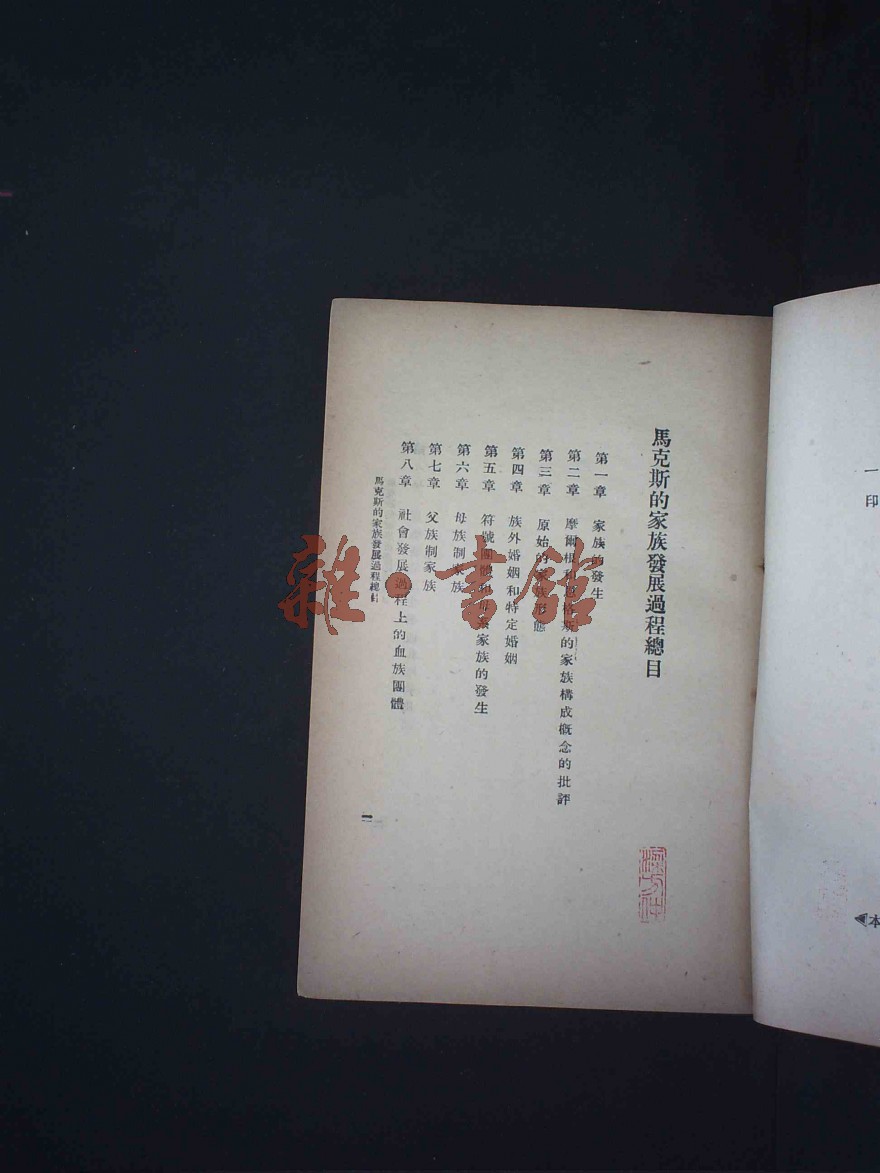 馬克斯的家族發展過程總目
第一章 家族的發生
第二章 摩爾根和恩格斯的家族構成概念的批評
第三章 原始的家族形態
第四章 族外婚姻和特定婚姻
第五章 符號團體和母系家族的發生
第六章 母族制家族
第七章 父族制家族
第八章 社會發展過程上的血族團體
馬克斯的家族發展過程總目
一
雜·書館
一
印
本